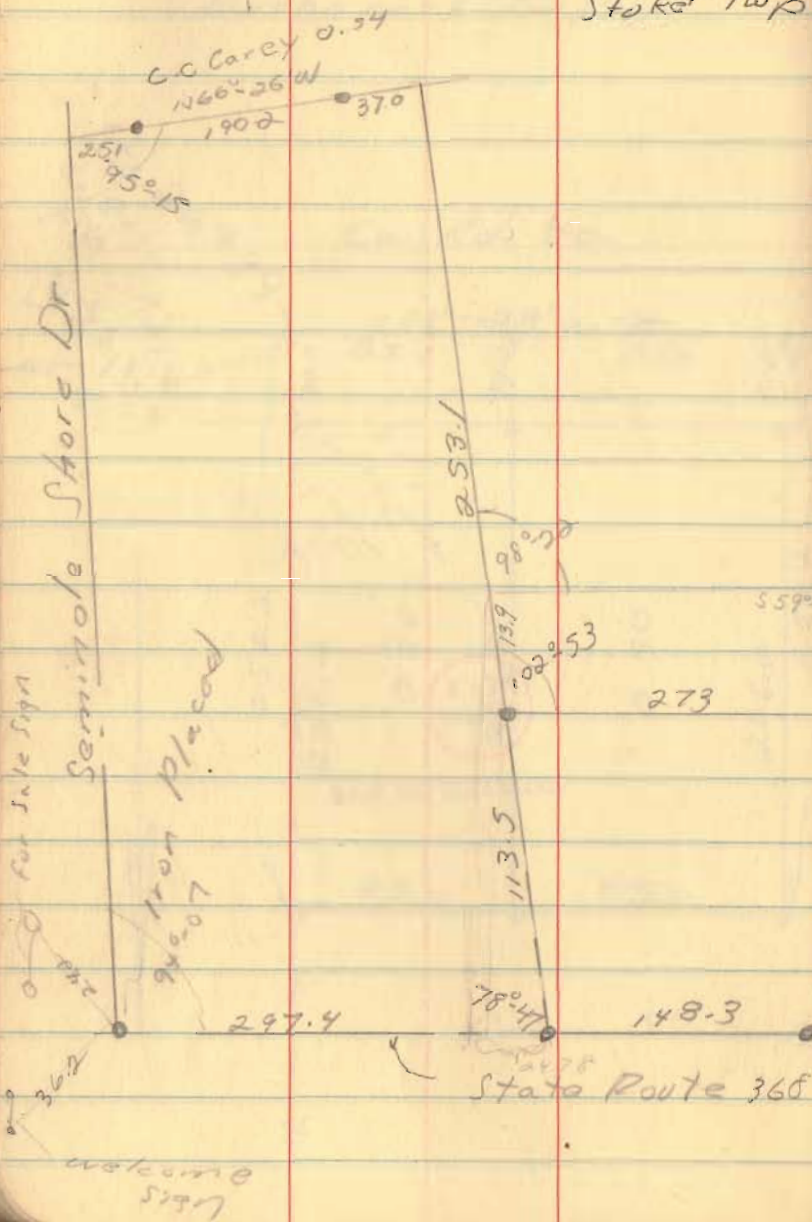 Stoke Twp
C.C Carey 0.54
N66°-26 W
190.2
37.0
25.1
95°-15
Seminole Shore Dr
253.1
13.9
-02°-53
S59°
273
For Sale Sign
Iron Placed
94°-07
113.5
78°-47
297.4
148.3
36.2
State Route 368
welcome
Sign